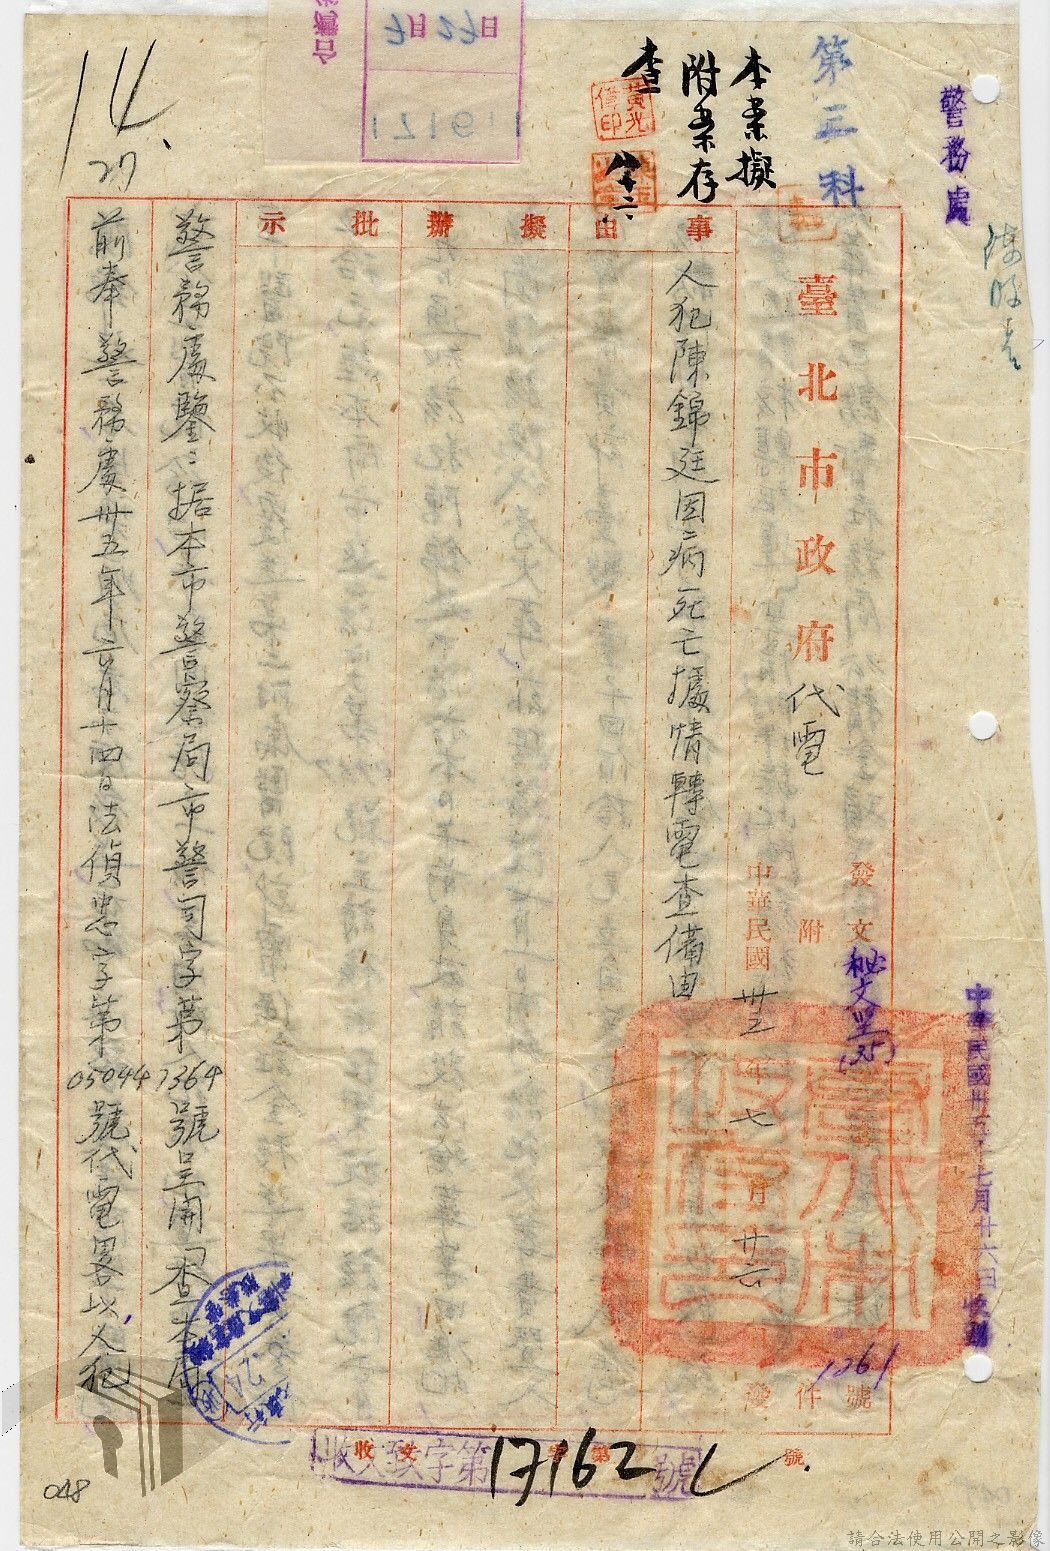 警務處
第三科
本案擬
附案存
查
黃光
臺北市政府代電
發文
附件
號
中華民國卅五年七月廿六日發
中華民國卅五年七月廿六日收到
1261
事由
擬辦
批示
人犯陳錦廷因病死亡據情轉電查備由
警務處鑒:据本市警察局市警司字第7364號呈開「查本局
前奉 警務處卅五年六月廿四日法偵忠字第05044號代電畧以人犯
收文致字第17162號
收文 字第 號
14
27
048
請合法使用公開之影像